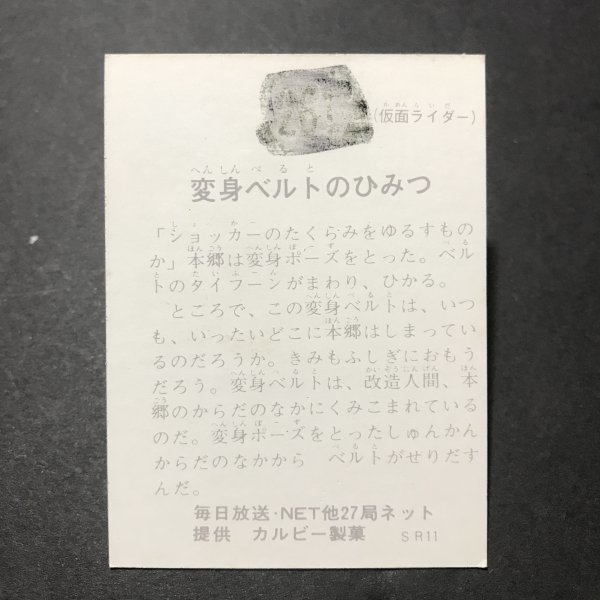 (仮面ライダー)
かめんらいだー
へんしんべると
変身ベルトのひみつ
「ショッカーのたくらみをゆるすもの
か」本郷は変身ポーズをとった。ベル
トのタイフーンがまわり、ひかる。
ところで、この変身ベルトは、いつ
も、いったいどこに本郷はしまってい
るのだろうか。きみもふしぎにおもう
だろう。変身ベルトは、改造人間、本
郷のからだのなかにくみこまれている
のだ。変身ポーズをとったしゅんかん
からだのなかから ベルトがせりだす
んだ。
毎日放送・NET他27局ネット
提供 カルビー製菓 SR11